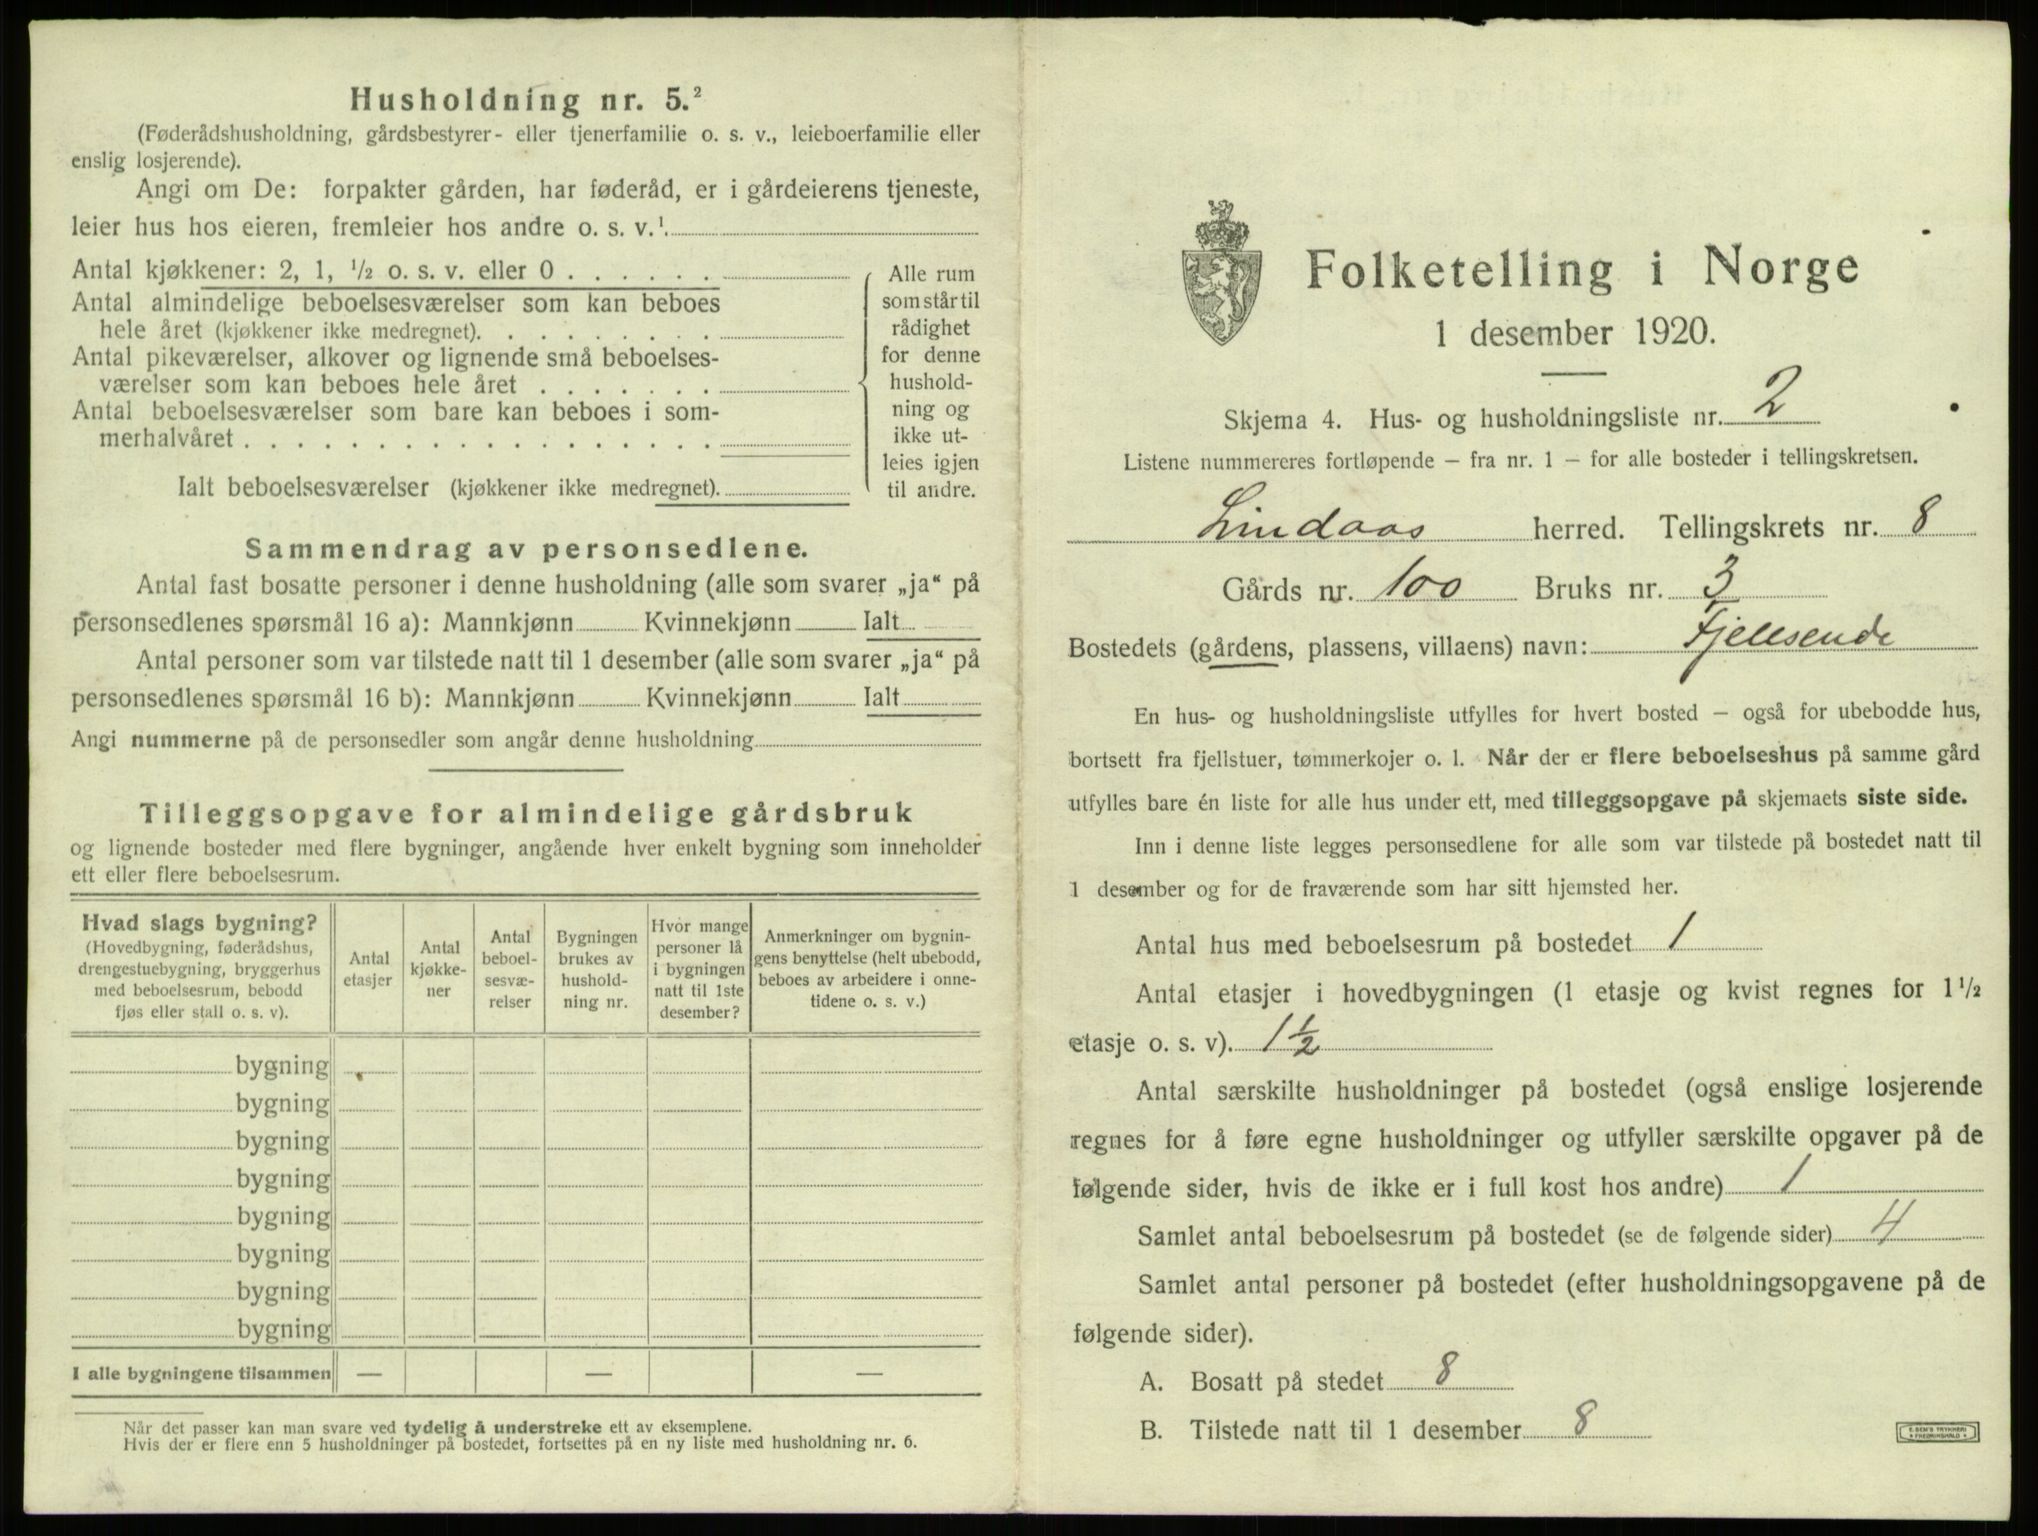 Husholdning nr. 5.²
(Føderådshusholdning, gårdsbestyrer- eller tjenerfamilie o. s. v., leieboerfamilie eller
enslig losjerende).
Angi om De: forpakter gården, har føderåd, er i gårdeierens tjeneste,
leier hus hos eieren, fremleier hos andre o. s. v.¹
Antal kjøkkener: 2, 1, ½ o. s. v. eller 0 . . . . . .
Antal almindelige beboelsesværelser som kan beboes
hele året (kjøkkener ikke medregnet). . . . . . . . .
Antal pikeværelser, alkover og lignende små beboelses-
værelser som kan beboes hele året . . . . . . .
Antal beboelsesværelser som bare kan beboes i som-
merhalvåret . . . . . . . . . . . . . . . . . .
Ialt beboelsesværelser (kjøkkener ikke medregnet).
Alle rum
som står til
rådighet
for denne
hushold-
ning og
ikke ut-
leies igjen
til andre.
Sammendrag av personsedlene.
Antal fast bosatte personer i denne husholdning (alle som svarer „ja“ på
personsedlenes spørsmål 16 a): Mannkjønn Kvinnekjønn Ialt
Antal personer som var tilstede natt til 1 desember (alle som svarer „ja“ på
personsedlenes spørsmål 16 b): Mannkjønn Kvinnekjønn Ialt
Angi nummerne på de personsedler som angår denne husholdning
Tilleggsopgave for almindelige gårdsbruk
og lignende bosteder med flere bygninger, angående hver enkelt bygning som inneholder
ett eller flere beboelsesrum.
Hvad slags bygning?
(Hovedbygning, føderådshus,
drengestuebygning, bryggerhus
med beboelsesrum, bebodd
fjøs eller stall o. s. v).
Antal
etasjer
Antal
kjøkke-
ner
Antal
beboel-
sesvæ-
relser
Bygningen
brukes av
hushold-
ning nr.
Hvor mange
personer lå
i bygningen
natt til 1ste
desember?
Anmerkninger om bygnin-
gens benyttelse (helt ubebodd,
beboes av arbeidere i onne-
tidene o. s. v.)
bygning
bygning
bygning
bygning
bygning
bygning
bygning
bygning
I alle bygningene tilsammen — — —
Når det passer kan man svare ved tydelig å understreke ett av eksemplene.
Hvis der er flere enn 5 husholdninger på bostedet, fortsettes på en ny liste med husholdning nr. 6.
Folketelling i Norge
1 desember 1920.
Skjema 4. Hus- og husholdningsliste nr. 2
Listene nummereres fortløpende — fra nr. 1 — for alle bosteder i tellingskretsen.
Lindaas herred. Tellingskrets nr. 8
Gårds nr. 100 Bruks nr. 3
Bostedets (gårdens, plassens, villaens) navn: Fjellsende
En hus- og husholdningsliste utfylles for hvert bosted — også for ubebodde hus,
bortsett fra fjellstuer, tømmerkojer o. l. Når der er flere beboelseshus på samme gård
utfylles bare én liste for alle hus under ett, med tilleggsopgave på skjemaets siste side.
Inn i denne liste legges personsedlene for alle som var tilstede på bostedet natt til
1 desember og for de fraværende som har sitt hjemsted her.
Antal hus med beboelsesrum på bostedet 1
Antal etasjer i hovedbygningen (1 etasje og kvist regnes for 1½
etasje o. s. v). 1½
Antal særskilte husholdninger på bostedet (også enslige losjerende
regnes for å føre egne husholdninger og utfyller særskilte opgaver på de
følgende sider, hvis de ikke er i full kost hos andre) 1
Samlet antal beboelsesrum på bostedet (se de følgende sider) 4
Samlet antal personer på bostedet (efter husholdningsopgavene på de
følgende sider).
A. Bosatt på stedet 8
B. Tilstede natt til 1 desember 8
E. SEM'S TRYKKERI
FREDRIKSHALD